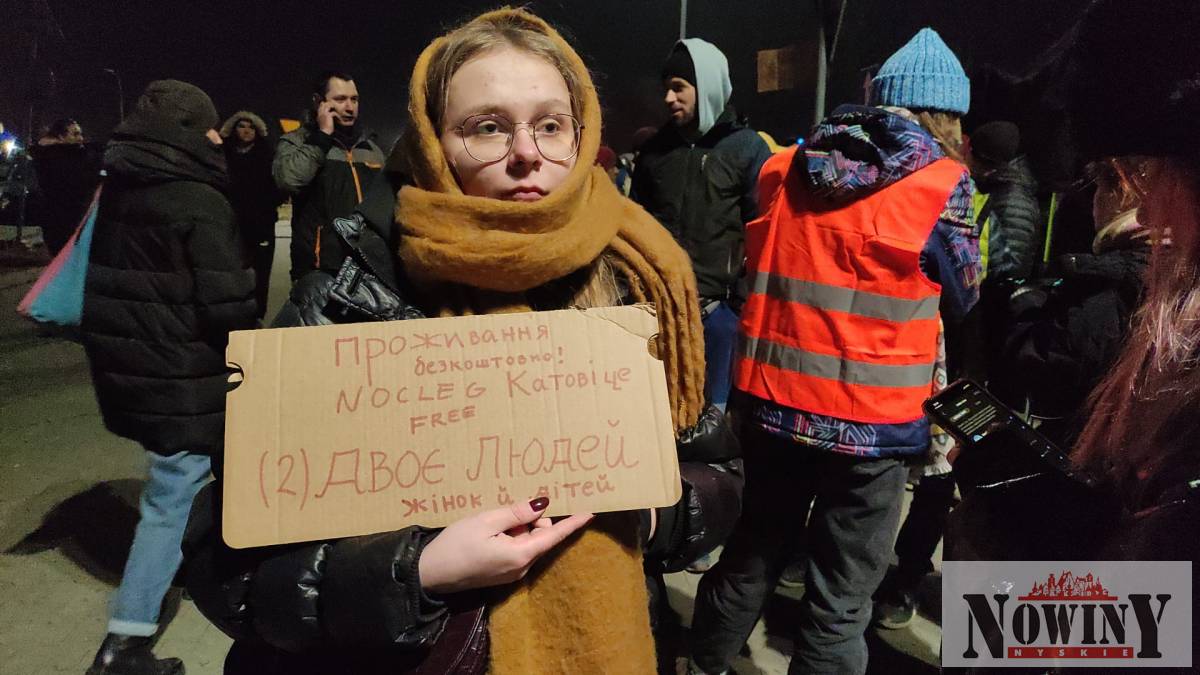 Проживання
безкоштовно!
NOCLEG Катовіце
FREE
(2) ДВОЄ ЛЮДЕЙ
жінок й дітей
NOWINY
NYSKIE